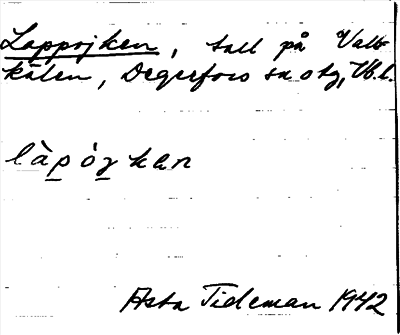 Lappojken, tall på Vall-
kålen, Degerfors sn o tg, Vb.l.
làpòjkan
Asta Tideman 1942